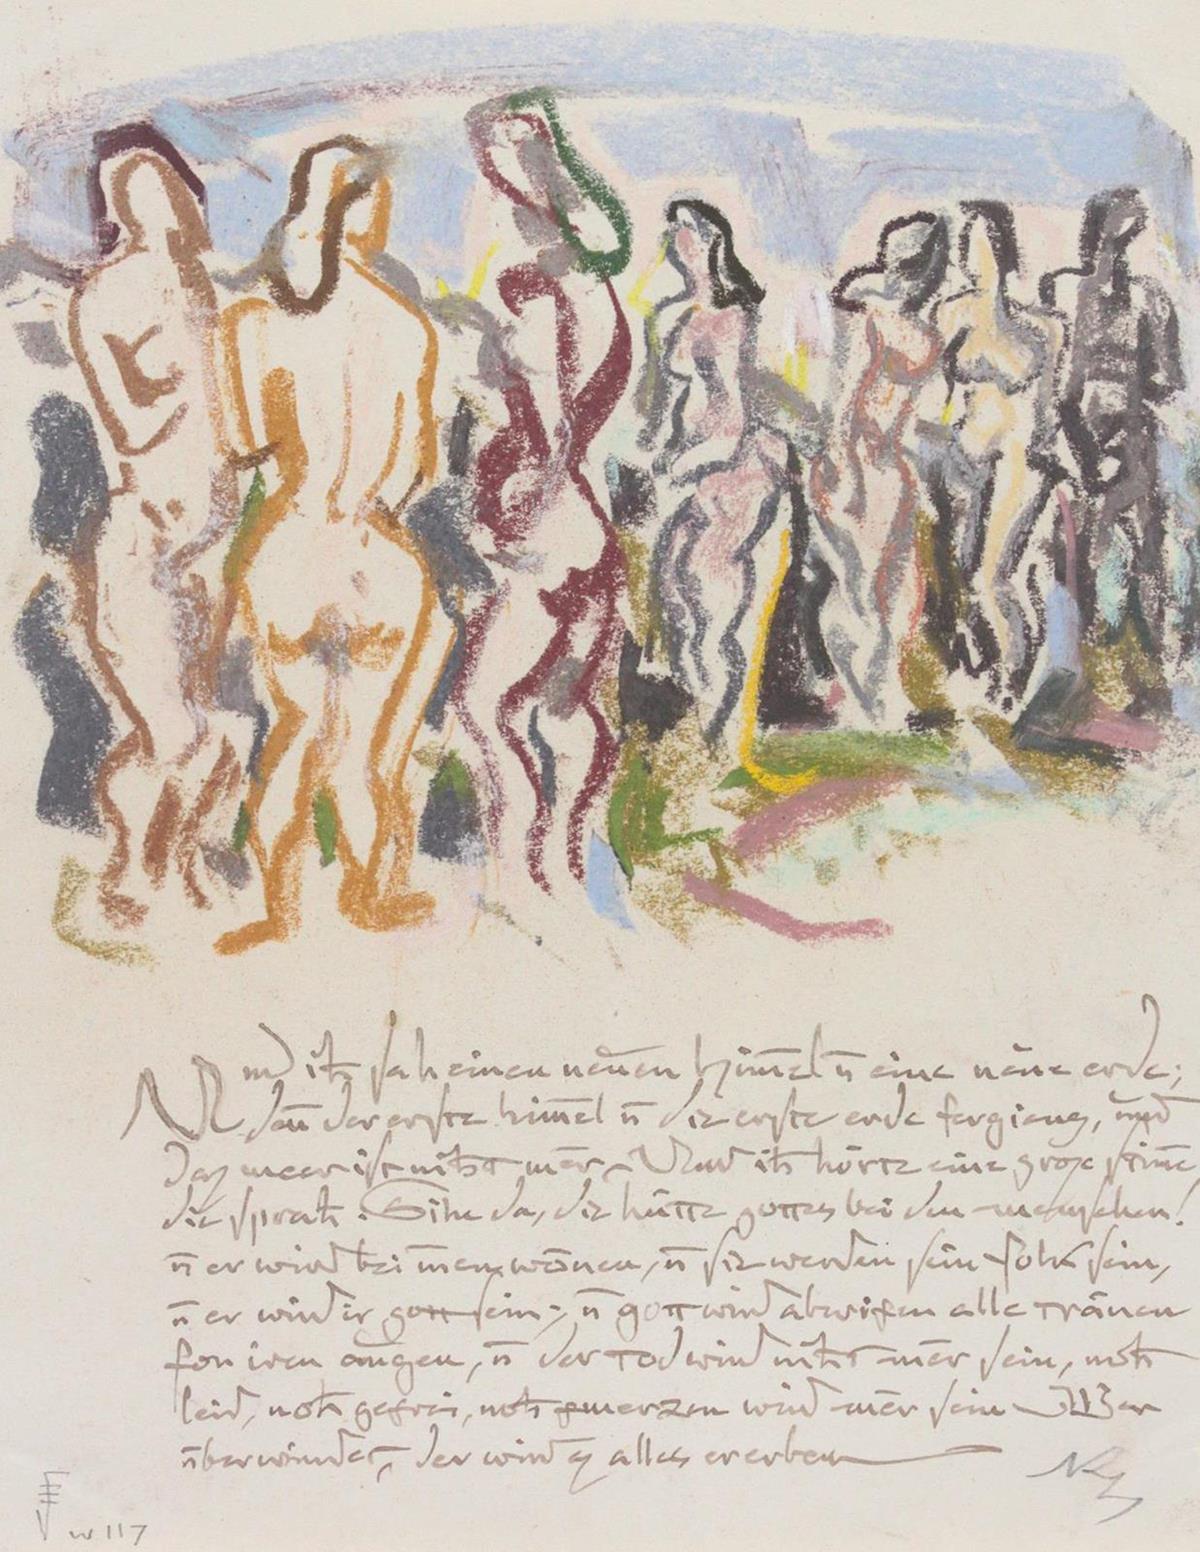 Und ich sah einen neuen himmel ñ eine neue erde;
deñ der erste him̄el ñ die erste erde fergieng, und
das meer ist nicht mēr. Und ich hörte eine groze stim̄e
die sprach: Sihe da, die hütte gottes bei den menschen!
ñ er wird bei inen wōnen, ñ sie werden sein folk sein,
ñ er wird ir gott sein; ñ gott wird abwischen alle tränen
fon iren augen, ñ der tod wird nicht mēr sein, noch
leid, noch geschrei, noch schmerzen wird mēr sein Wer
überwindet, der wird es alles ererben
w 117